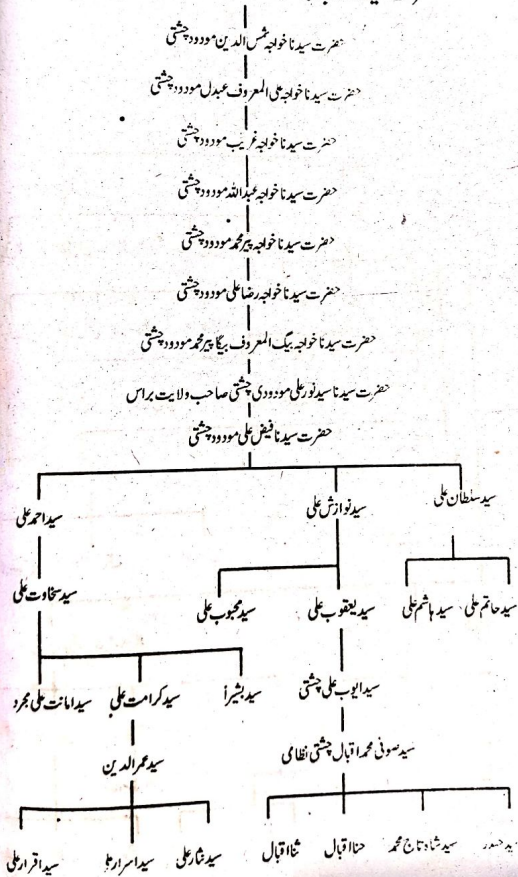 حضرت سیدنا خواجہ شمس الدین مودود چشتی
حضرت سیدنا خواجہ علی المعروف عبدل مودود چشتی
حضرت سیدنا خواجہ غریب مودود چشتی
حضرت سیدنا خواجہ عبداللہ مودود چشتی
حضرت سیدنا خواجہ پیر محمد مودود چشتی
حضرت سیدنا خواجہ رضا علی مودود چشتی
حضرت سیدنا خواجہ بیگ المعروف بیگا پیر محمد مودود چشتی
حضرت سیدنا سید نور علی مودودی چشتی صاحب ولایت براس
حضرت سیدنا فیض علی مودود چشتی
سید سلطان علی
سید نوازش علی
سید احمد علی
سید حاتم علی
سید ہاشم علی
سید یعقوب علی
سید محبوب علی
سید سخاوت علی
سید ایوب علی چشتی
سید بشیراً
سید کرامت علی
سید امانت علی مجرد
سید صوفی محمد اقبال چشتی نظامی
سید عمر الدین
سید شاہ تاج محمد
حنا اقبال
ثنا اقبال
سید نثار علی
سید اسرار علی
سید اقرار علی